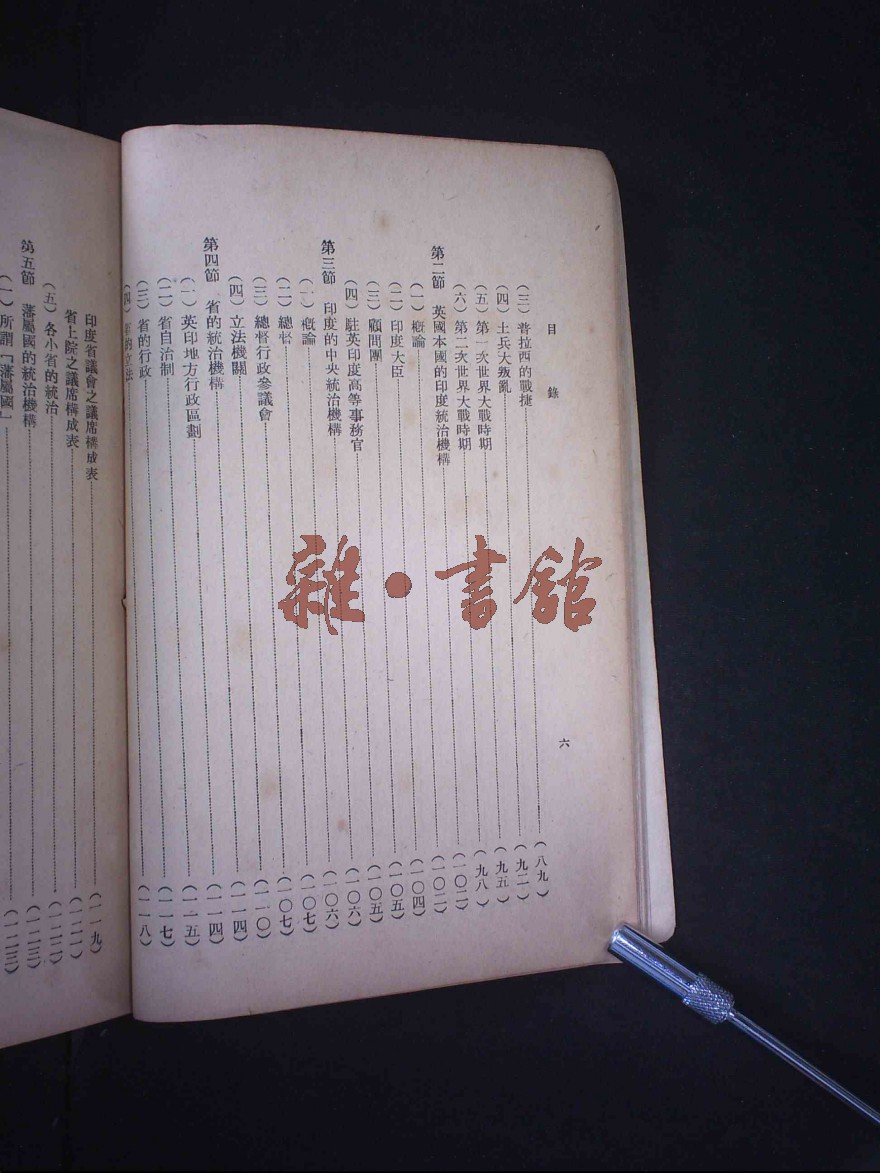 目錄 六
(三) 普拉西的戰捷 (八九)
(四) 土兵大叛亂 (九二)
(五) 第一次世界大戰時期 (九五)
(六) 第二次世界大戰時期 (九八)
第二節 英國本國的印度統治機構 (一〇二)
(一) 概論 (一〇二)
(二) 印度大臣 (一〇四)
(三) 顧問團 (一〇五)
(四) 駐英印度高等事務官 (一〇五)
第三節 印度的中央統治機構 (一〇六)
(一) 概論 (一〇六)
(二) 總督 (一〇七)
(三) 總督行政參議會 (一〇七)
(四) 立法機關 (一一〇)
第四節 省的統治機構 (一一四)
(一) 英印地方行政區劃 (一一四)
(二) 省自治制 (一一五)
(三) 省的行政 (一一七)
(四) 的立法 (一一八)
印度省議會之議席構成表 (一一九)
省上院之議席構成表 (一二一)
(五) 各小省的統治 (一二二)
第五節 藩屬國的統治機構 (一二三)
(一) 所謂「藩屬國」 (一二三)
雜・書館